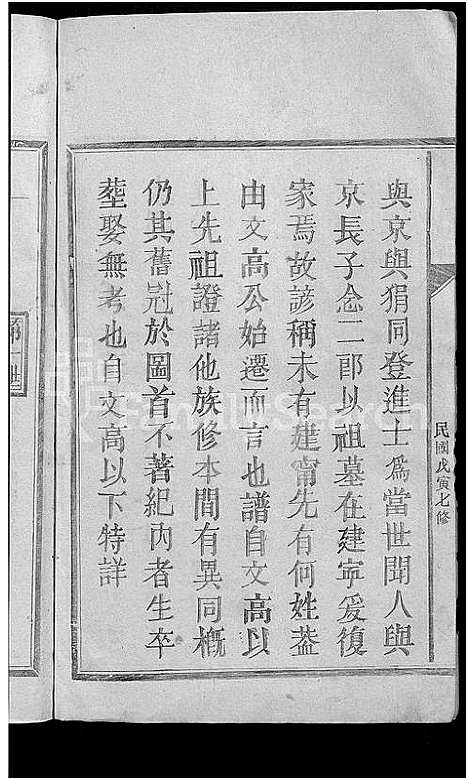 民國戊寅七修
與京與狷同登進士為當世聞人與
京長子念二郎以祖墓在建寧爰復
家焉故諺稱未有建甯先有何姓葢
由文高公始遷而言也譜自文高以
上先祖證諸他族修本間有異同概
仍其舊冠於圖首不著紀內者生卒
塟娶無考也自文高以下特詳
第一世
FamilySearch